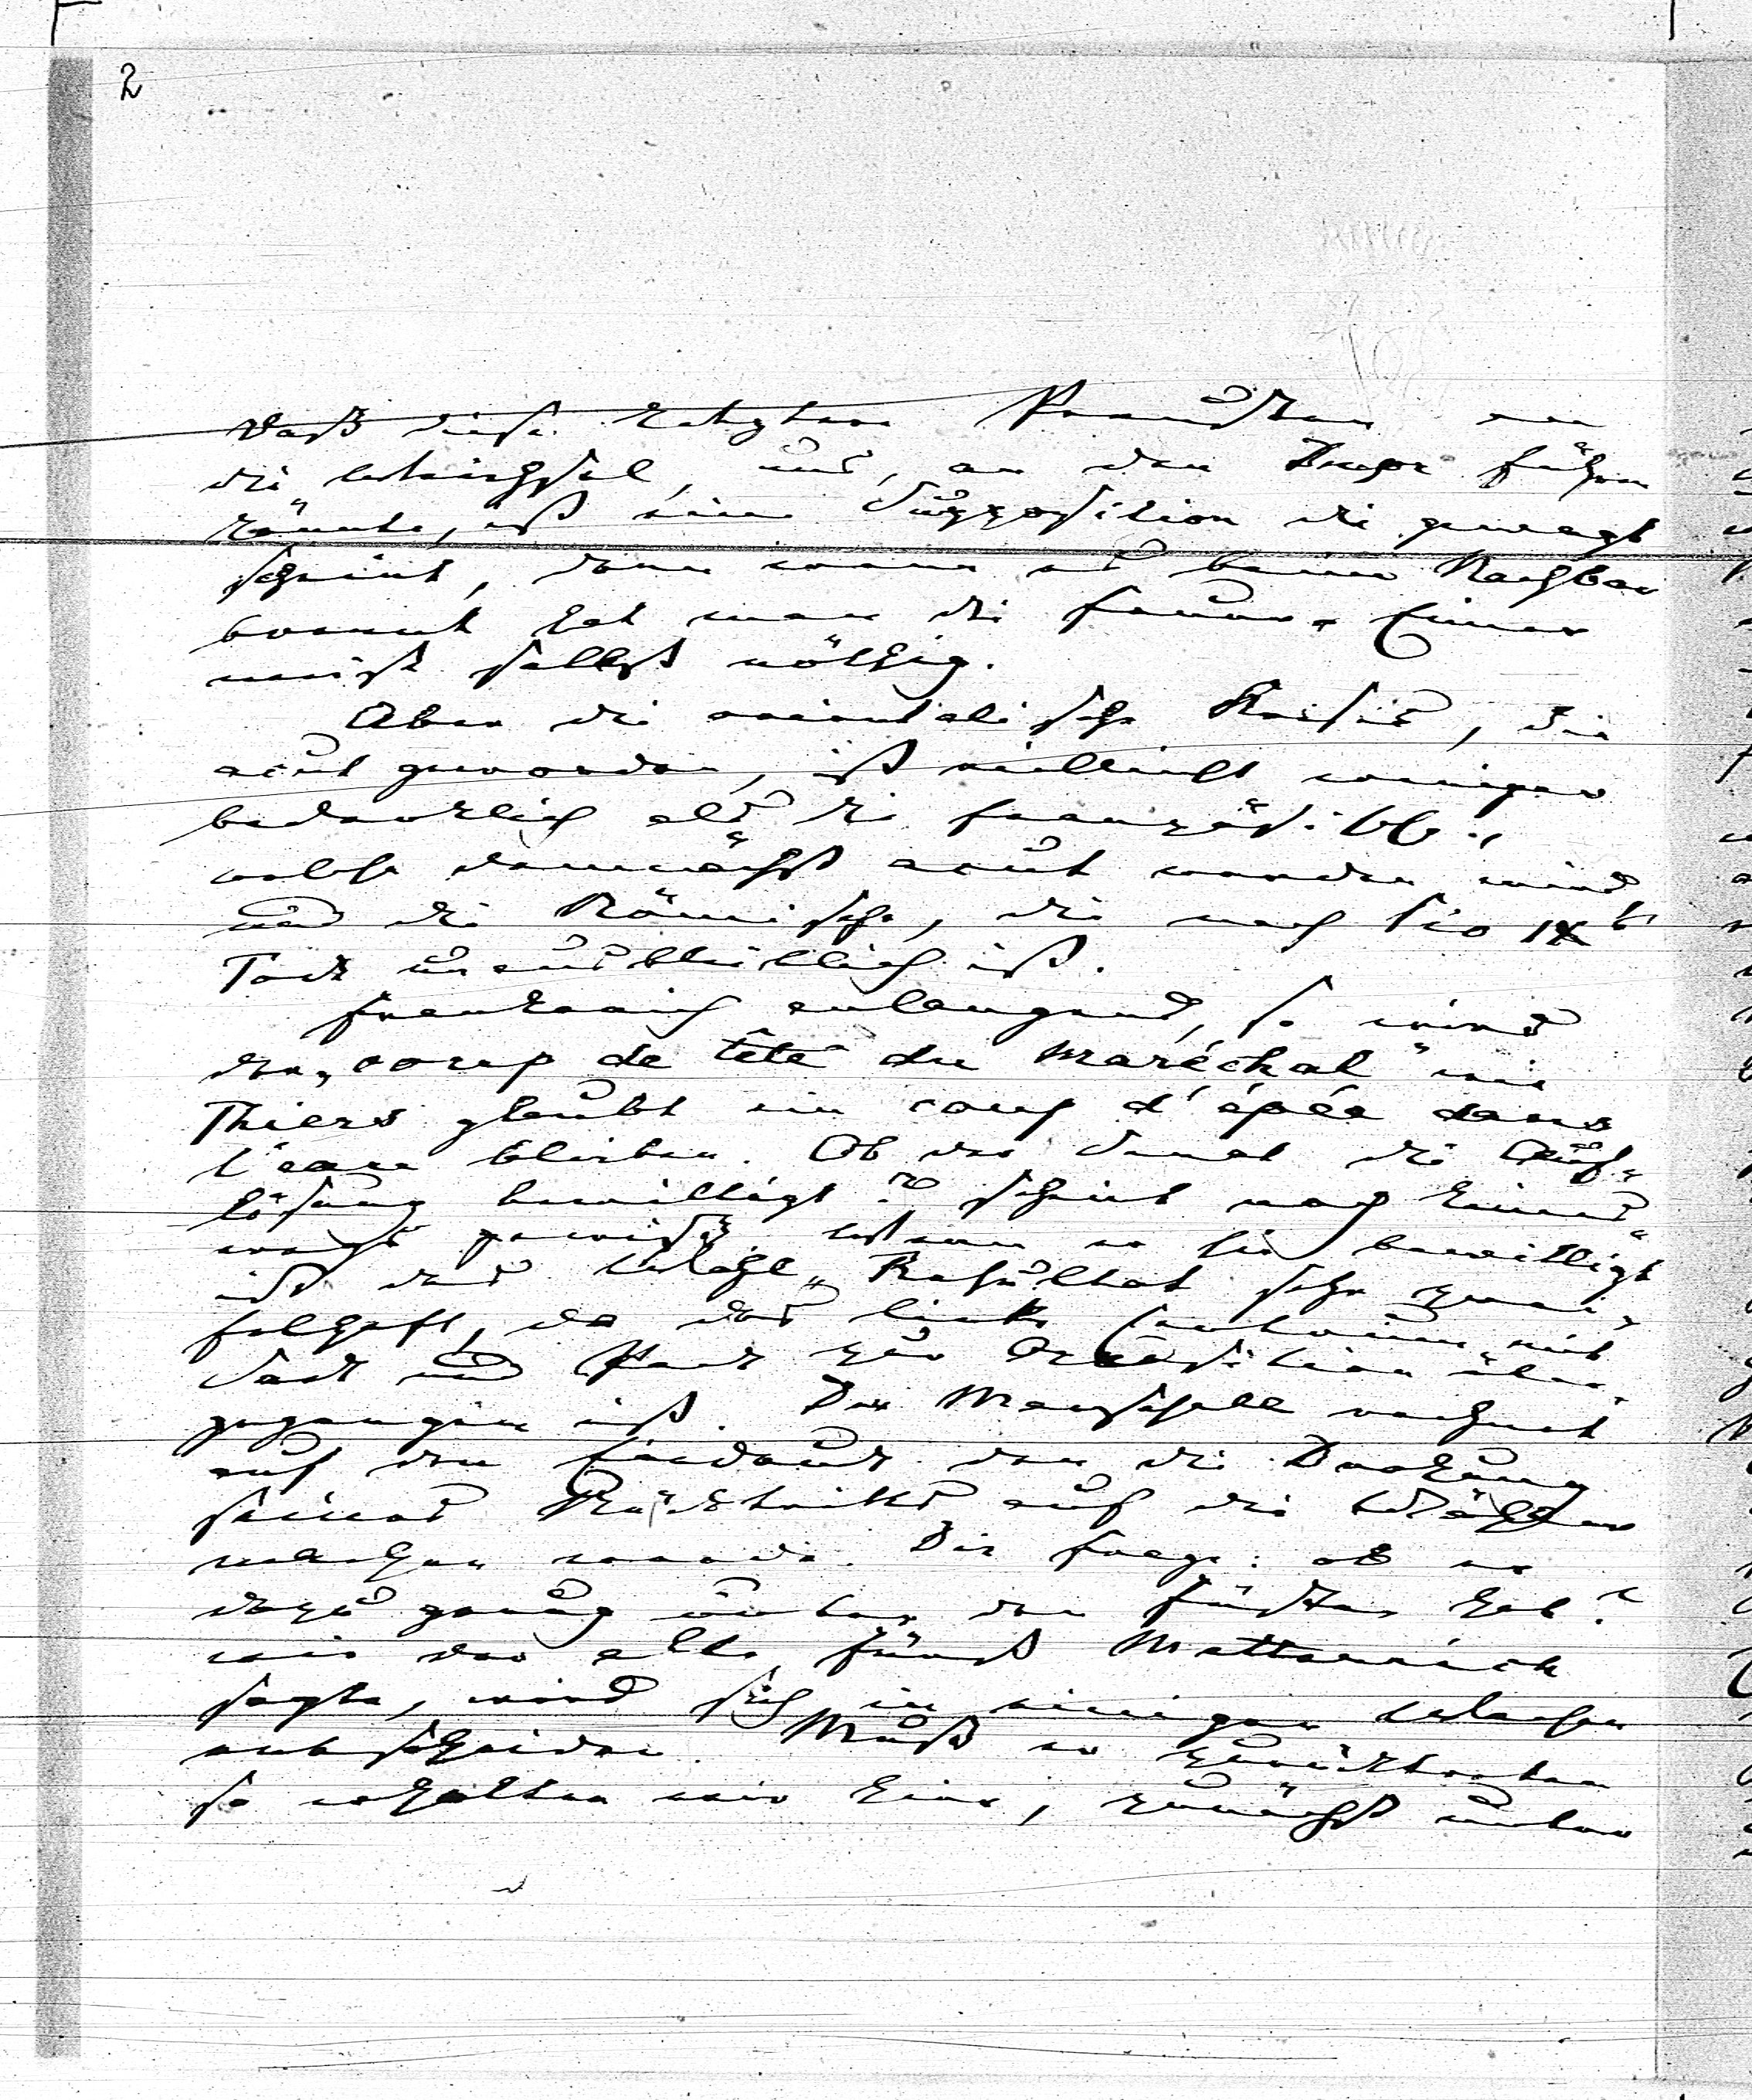 2
daß diese letztere Preußen an
die Weichsel, uns, an den Dnepr führen
könnte, ist eine Supposition die gewagt
scheint, denn wenn es beim Nachbar
brennt hat man die Feuer-Eimer
meist selbst nöthig.
Aber die orientalische Krisis, die
acut geworden, ist vielleicht weniger
bedenklich als die französische,
welche demnächst acut werden wird
und die Römische, die nach Pio IX's
Tode unausbleiblich ist.
Frankreich anlangend, so wird
der „coup de tête du Maréchal" wie
Thiers glaubt ein coup d'épée dans
l'eau bleiben. Ob der Senat die Auf-
lösung bewilligt? scheint noch keines-
wegs gewiß. Wenn er sie bewilligt
ist das Wahl-Resultat sehr zwei-
felhaft, da das linke Centrum mit
Sack und Pack zur Opposition über-
gegangen ist. Der Marschall rechnet
auf den Eindruck den die Drohung
seines Rücktritts auf die Wähler
machen werde. Die Frage: ob er
dazu genug unter den Füßen hat?
wie der alte Fürst Metternich
sagte, wird sich in einigen Wochen
entscheiden. Muß er zurücktreten
so erhalten wir hier, zunächst unter